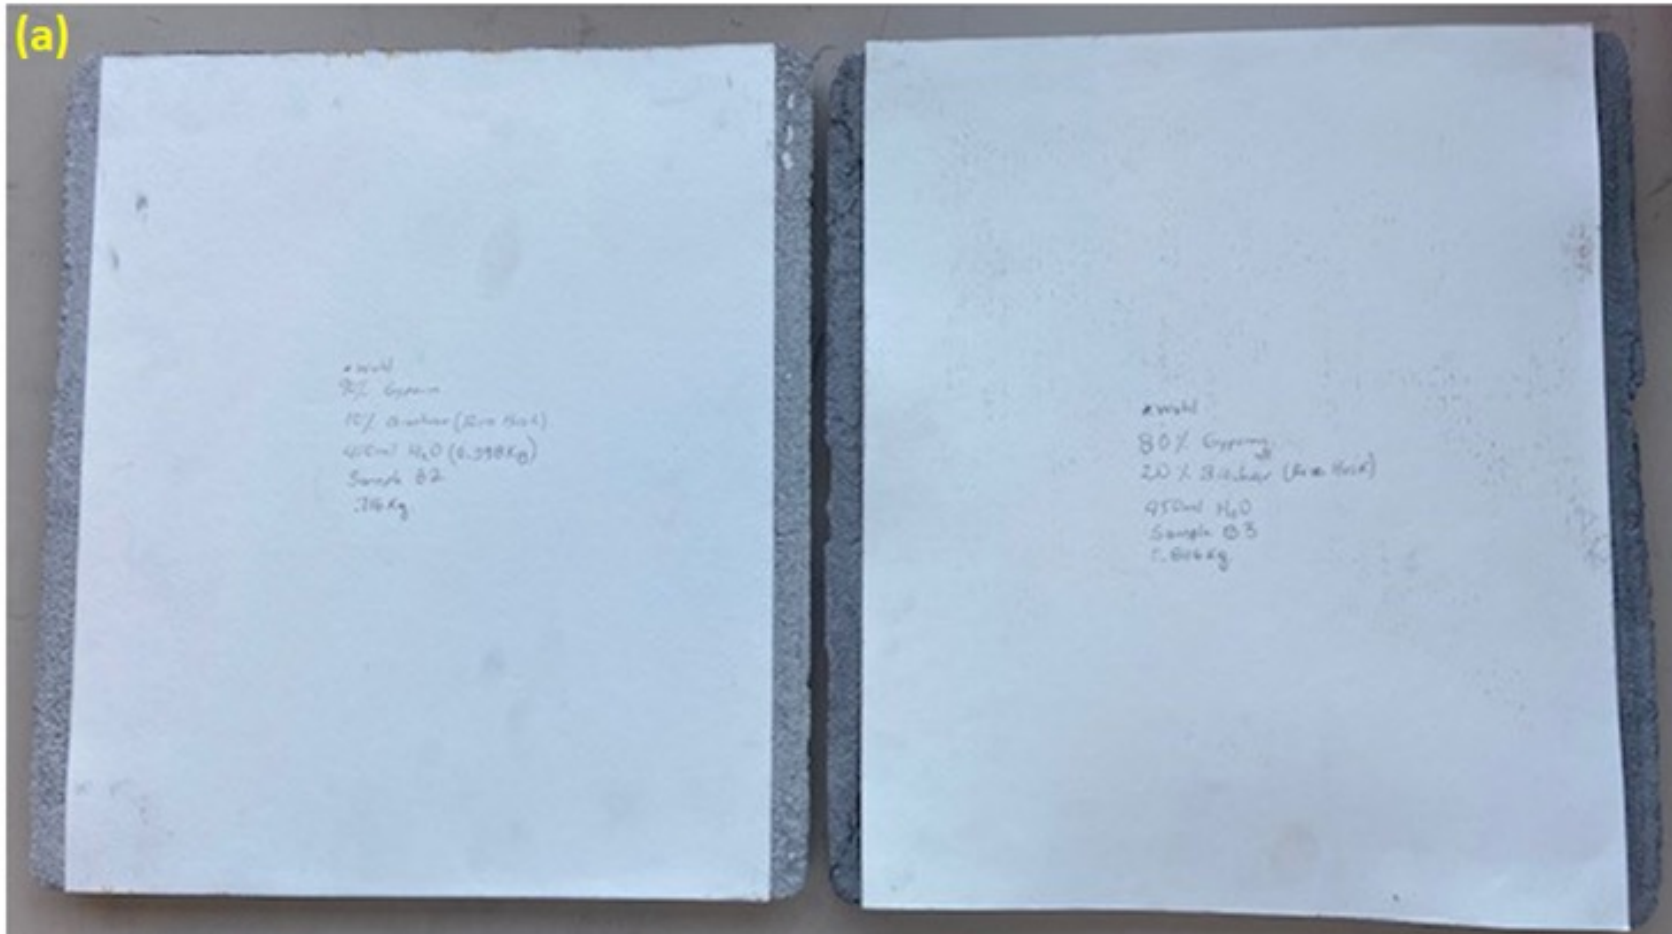 (a)
90% Gypsum
10% Biochar (Rice Husk)
450ml H2O (0.398Kg)
Sample B2
.716Kg
80% Gypsum
20% Biochar (Rice Husk)
450ml H2O
Sample B3
.806Kg